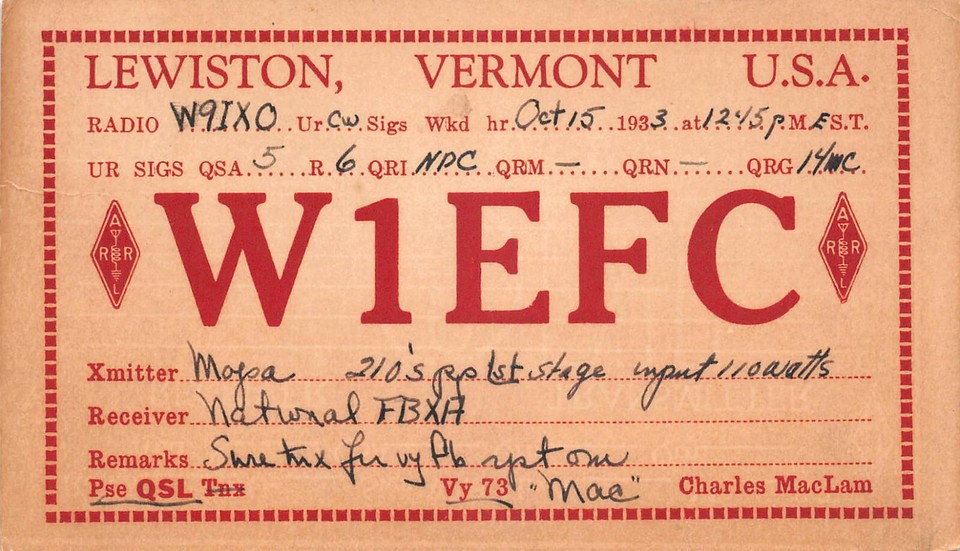 LEWISTON, VERMONT U.S.A.
RADIO W9IXO Ur CW Sigs Wkd hr. Oct 15 1933 at 1245 P M. E S.T.
UR SIGS QSA 5 R. 6 QRI NDC QRM — QRN — QRG 14 mc
A R R L W1EFC A R R L
Xmitter Mopa 210's pp lst stage input 110 watts
Receiver National FBXA
Remarks Sure tnx fer vy fb rpt om
Pse QSL Tnx Vy 73 "Mac" Charles MacLam